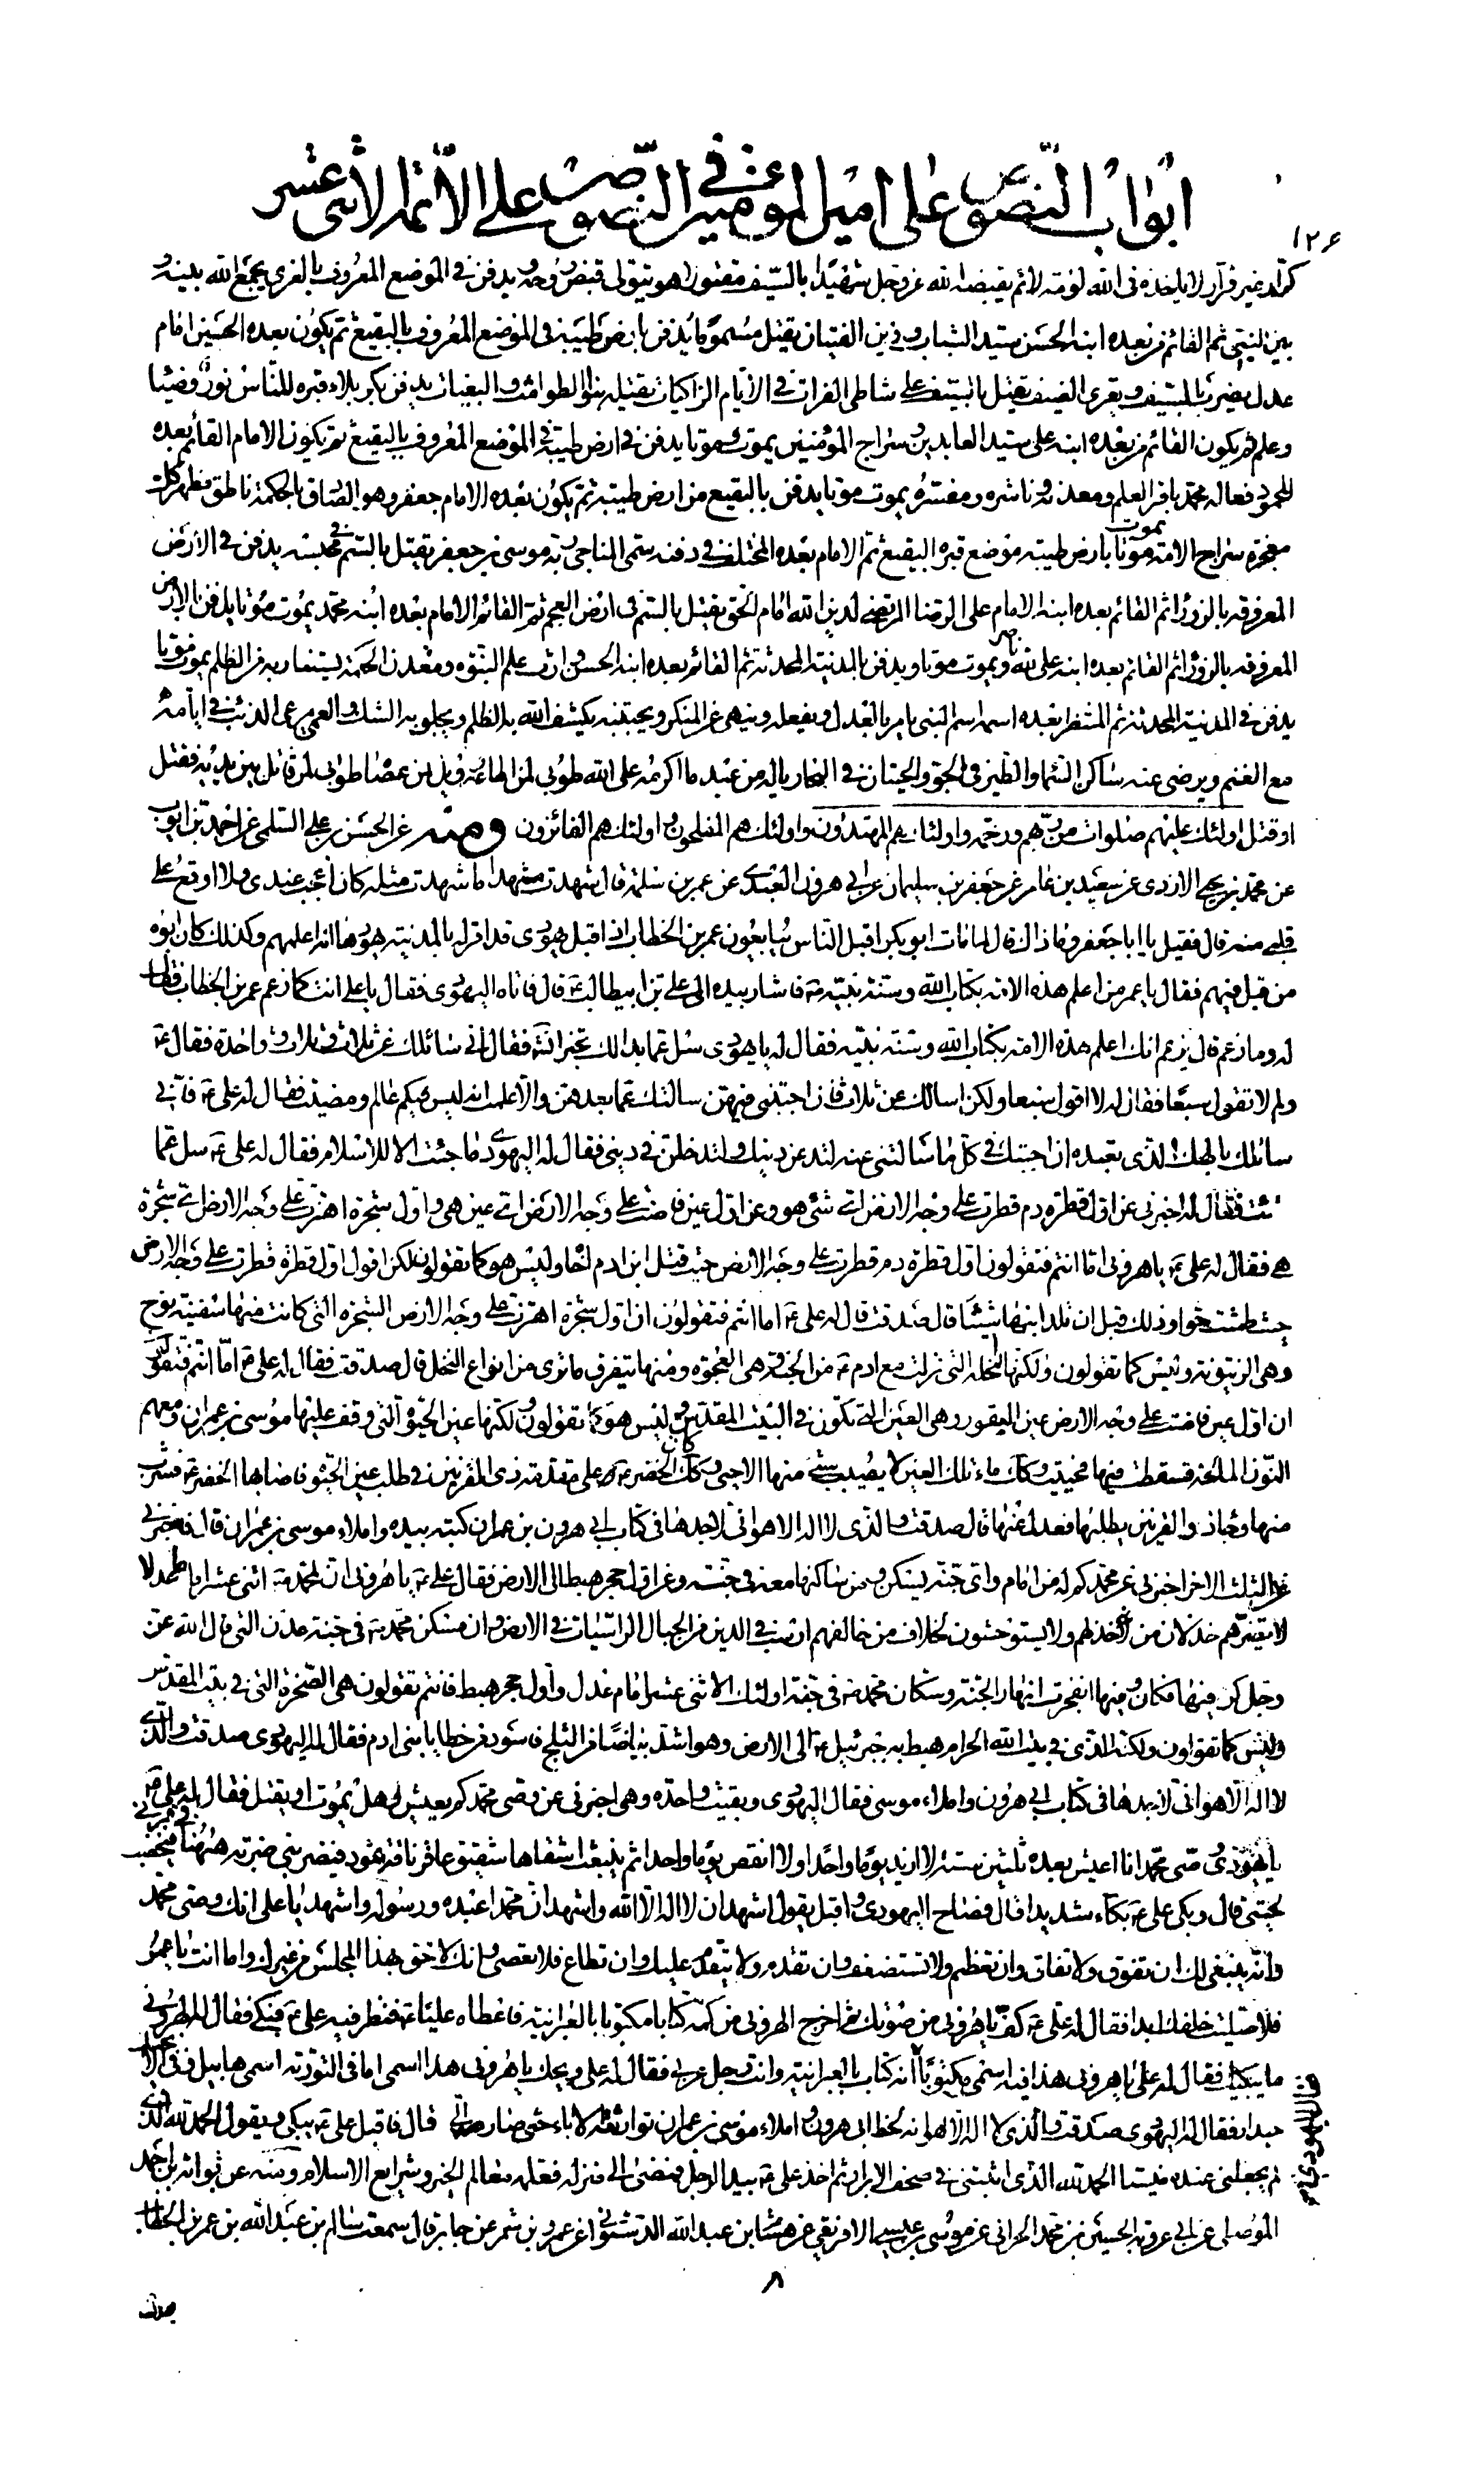 ابواب النصوص على امير المؤمنين ع في النصوص على الأئمة الاثنى عشر
١٢٤
كرار غير فرار لا يأخذه فى الله لومة لائم يقبضه الله عز وجل شهيدا بالسيف مقتولا هو يتولى قبض روحه و يدفن فى الموضع المعروف بالغرى يجمع الله بينه و
بين النبي ثم القائم من بعده ابنه الحسن سيد الشباب و زين الفتيان يقتل مسموما يدفن بارض طيبة فى الموضع المعروف بالبقيع ثم يكون بعده الحسين امام
عدل يضرب بالسيف و يقرى الضيف يقتل بالسيف على شاطى الفرات فى الايام الزاكيات يقتله بنو الطوامث و البغيات يدفن بكربلاء قبره للناس نور و ضياء
و علم ثم يكون القائم من بعده ابنه على سيد العابدين و سراج المؤمنين يموت موتا يدفن فى ارض طيبة فى الموضع المعروف بالبقيع ثم يكون الامام القائم بعده
المحمود فعاله محمد باقر العلم و معدنه و ناشره و مفسره يموت موتا يدفن بالبقيع من ارض طيبة ثم يكون بعده الامام جعفر و هو الصادق بالحكمة ناطق مظهر كل
معجزة سراج الامة يموت موتا بارض طيبة موضع قبره البقيع ثم الامام بعده المختلف فى دفنه سمى المناجى ربه موسى بن جعفر يقتل بالسم فى محبسه يدفن فى الارض
المعروفه بالزوراء ثم القائم بعده ابنه الامام على الرضا المرتضى لدين الله امام الحق يقتل بالسم فى ارض العجم ثم القائم الامام بعده ابنه محمد يموت موتا يدفن بالارض
المعروفه بالزوراء ثم القائم بعده ابنه على لله ناصر و يموت موتا و يدفن بالمدينة المحدثة ثم القائم بعده ابنه الحسن وارث علم النبوه و معدن الحكمة يستضاء به من الظلم يموت موتا
يدفن فى المدينة المحدثة ثم المنتظر بعده اسمه اسم النبي يامر بالعدل و يفعله و ينهى عن المنكر و يجتنبه يكشف الله به الظلم و يجلو به الشك و العمى يرعى الذئب فى ايامه
مع الغنم و يرضى عنه ساكن السماء و الطير فى الجو و الحيتان فى البحار يا له من عبد ما اكرمه على الله طوبى لمن اطاعه و ويل لمن عصاه طوبى لمن قاتل بين يديه فقتل
او قتل اولئك عليهم صلوات من ربهم و رحمة و اولئك هم المهتدون و اولئك هم المفلحون و اولئك هم الفائزون ومنه عن الحسن بن على السلمى عن احمد بن ايوب
عن محمد بن يحيى الازدى عن سعيد بن عامر عن جعفر بن سليمان عن ابى هرون العبدى عن عمر بن سلمة قال شهدت مشهدا ما شهدت مثله كان اعجب عندى و لا اوقع على
قلبى منه قال فقيل يا ابا جعفر و ما ذاك قال لما مات ابو بكر اقبل الناس يبايعون عمر بن الخطاب اذ اقبل يهودى قد اقر له بالمدينة يهودها انه اعلمهم و كذلك كان ابوه
من قبل فيهم فقال يا عمر من اعلم هذه الامة بكتاب الله و سنة نبيه ص فاشار بيده الى على بن ابيطالب ع قال فاتاه اليهودى فقال يا على انت كما زعم عمر بن الخطاب فقال
له و ما زعم قال يزعم انك اعلم هذه الامة بكتاب الله و سنة نبيه فقال له يا يهودى سل عما بدا لك تخبر انشاء فقال انى سائلك عن ثلاث و ثلاث و واحدة فقال ع
و لم لا تقول سبعا فقال له لا اقول سبعا و لكن اسالك عن ثلاث فان اجبتنى فيهن سالتك عما بعدهن و الا علمت انه ليس فيكم عالم و مضيت فقال له على ع فانى
سائلك بالهك الذى تعبده ان اجبتك فى كل ما سالتنى عنه لتدعن دينك و لتدخلن فى دينى فقال له اليهودى ما جئت الا للاسلام فقال له على ع سل عما
شئت فقال له اخبرنى عن اول قطرة دم قطرت على وجه الارض اى شئ هو و عن اول عين فاضت على وجه الارض اى عين هى و اول شجرة اهتزت على وجه الارض اى شجرة
هى فقال له على ع يا هرونى اما انتم فتقولون اول قطرة دم قطرت على وجه الارض حيث قتل ابن ادم اخاه و ليس هو كما تقولون و لكن اقول اول قطرة قطرت على وجه الارض
حيث طمثت حوا و ذلك قبل ان تلد ابنها شيئا قال صدقت قال له على ع اما انتم فتقولون ان اول شجرة اهتزت على وجه الارض الشجرة التى كانت منها سفينة نوح
و هى الزيتونة و ليس كما تقولون و لكنها النخلة التى نزلت مع ادم ع من الجنة و هى العجوة و منها يتفرق ما ترى من انواع النخل قال صدقت فقال له على ع اما انتم فتقولون
ان اول عين فاضت على وجه الارض عين اليقور و هى العين التى تكون فى البيت المقدس و ليس هو كما تقولون و لكنها عين الحيوة التى وقف عليها موسى بن عمران و معهم
النون المملحة فسقطت فيها فحييت و كان ماء تلك العين لا يصيب شئ منها الا حيى و كان الخضر ع على مقدمة ذى القرنين فى طلب عين الحيوة فاصابها الخضر ع فشرب
منها و جاز ذو القرنين يطلبها فعدل عنها قال صدقت و الذى لا اله الا هو انى لاجدها فى كتاب ابى هرون بن عمران كتبه بيده و املاء موسى بن عمران قال فاخبرنى
عن الثلث الاخر اخبرنى عن محمد كم له من امام و اى جنة يسكن و من ساكنها معه فى جنته و عن اول حجر هبط الى الارض فقال على ع يا هرونى ان لمحمد ص اثنى عشر اماما عدلا
لا يضرهم خذلان من خذلهم و لا يستوحشون بخلاف من خالفهم ارسب فى الدين من الجبال الراسيات فى الارض و ان مسكن محمد ص فى جنة عدن التى قال الله عز
و جل كن فيها فكان و منها انفجرت انهار الجنة و سكان محمد ص فى جنته اولئك الاثنى عشر امام عدل و اول حجر هبط فانتم تقولون هى الصخرة التى فى بيت المقدس
و ليس كما تقولون و لكنه الذى فى بيت الله الحرام هبط به جبرئيل ع الى الارض و هو اشد بياضا من الثلج فاسود من خطايا بنى ادم فقال له اليهودى صدقت و الذى
لا اله الا هو انى لاجدها فى كتاب ابى هرون و املاء موسى فقال اليهودى و بقيت واحده و هى اخبرنى عن وصى محمد كم يعيش و هل يموت او يقتل فقال له على ع
يا يهودى وصى محمد انا اعيش بعده ثلثين سنة لا ازيد يوما واحدا و لا انقص يوما واحدا ثم ينبعث اشقاها شقيق عاقر ناقة ثمود فيضربنى ضربة ههنا فى قرنى فيخضب
لحيتى قال و بكى على ع بكاء شديدا قال فصاح اليهودى و اقبل يقول اشهد ان لا اله الا الله و اشهد ان محمدا عبده و رسوله و اشهد يا على انك وصى محمد
و انه ينبغى لك ان تفوق و لا تفاق و ان تعظم و لا تستضعف و ان تقدم و لا يتقدم عليك و ان تطاع فلا تعصى و انك لاحق بهذا المجلس من غيرك و اما انت يا عمر
فلا صليت خلفك ابدا فقال له على ع كف يا هرونى من صوتك ثم اخرج الهرونى من كمه كتابا مكتوبا بالعبرانية فاعطاه عليا ع فنظر فيه على ع فبكى فقال له الهرونى
ما يبكيك فقال له على يا هرونى هذا فيه اسمى مكتوبا قال انه كتاب بالعبرانية و انت رجل عربى فقال له على ويحك يا هرونى هذا اسمى اما فى التورية اسمى هابيل و فى الانجيل
حبدار فقال له اليهودى صدقت و الذى لا اله الا هو انه لخط ابى هرون و املاء موسى بن عمران توارثته الاباء حتى صار الى قال فاقبل على ع يبكى و يقول الحمد لله الذى
لم يجعلنى عنده منسيا الحمد لله الذى اثبتنى فى صحف الابرار ثم اخذ على ع بيد الرجل فمضى الى منزله فعلمه معالم الخير و شرايع الاسلام ومنه عن ثوابة بن احمد
الموصلى عن ابى عروبة الحسين بن محمد الحرانى عن موسى بن عيسى الافريقى عن هشام بن عبد الله الدستوائى عن عمرو بن شمر عن جابر قال سمعت سالم بن عبد الله بن عمر بن الخطاب
٨